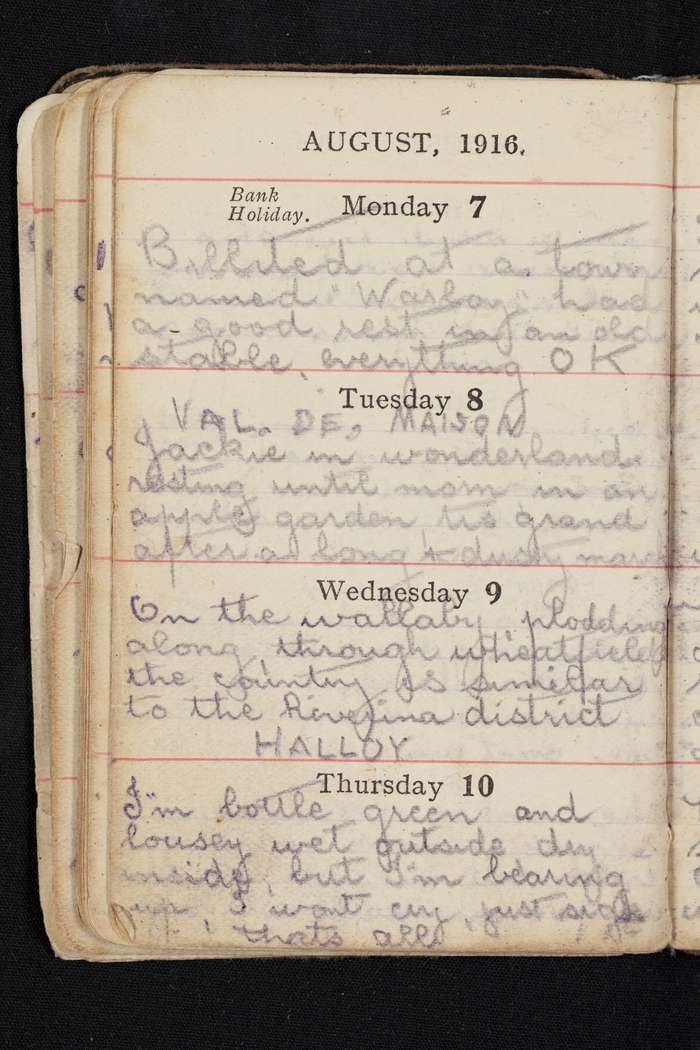 AUGUST, 1916.
Bank
Holiday. Monday 7
Billited at a town
named "Warloy" had
a good rest in an old
stable, everything OK
Tuesday 8
VAL. DE, MAISON
Jackie in wonderland.
resting until morn in an
apple garden tis grand
after a long & dusty march
Wednesday 9
On the wallaby plodding
along through wheatfields
the country is similar
to the Riverina district
HALLOY
Thursday 10
I'm bottle green and
lousey wet outside dry
inside, but I'm bearing
up, I wont cry, just sigh
thats all